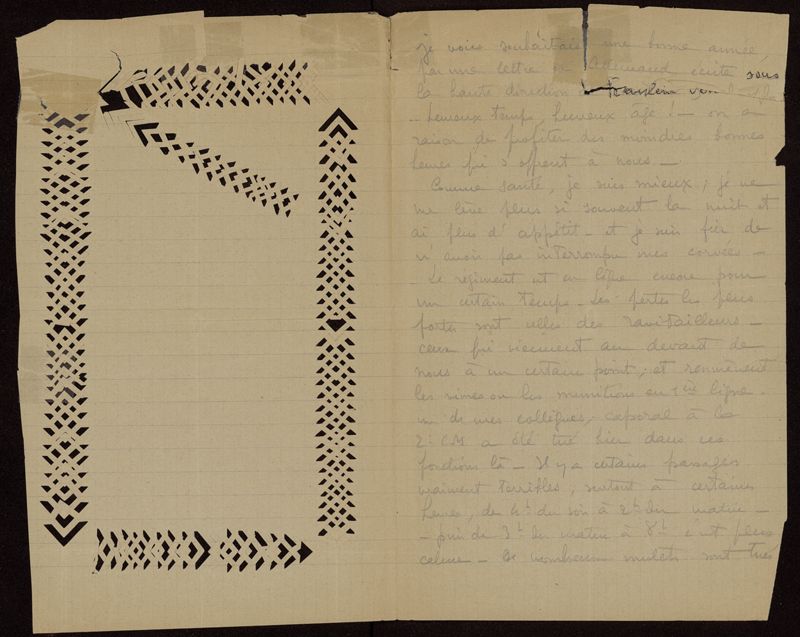 je vous souhaitais une bonne année,
par une lettre en Allemand, écrite sous
la haute direction
Heureux temps, heureux âge ! — on a
raison de profiter des moindres bonnes
heures qui s'offrent à nous. —
Comme santé, je suis mieux ; je ne
me lève plus si souvent la nuit et
ai plus d'appétit — et je suis fier de
n'avoir pas interrompu mes corvées —
Le régiment est en ligne encore pour
un certain temps. Les pertes les plus
fortes sont celles des ravitailleurs —
ceux qui viennent au devant de
nous à un certain point, et
les vivres ou les munitions en 1ère ligne.
un de mes collègues, caporal à la
2e CM a été tué hier dans ces
fonctions là — Il y a certains passages
vraiment terribles, surtout à certaines
heures, de 4h du soir à 2h du matin —
— puis de 3h du matin à 8h c'est plus
calme — De nombreux mulets sont tués